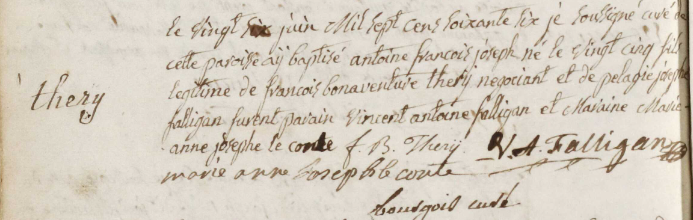 le vingt six juin Mil sept cens soixante six je soussigné curé de
cette paroisse aÿ baptisé antoine francois joseph né le vingt cinq fils
thery
legitime de francois bonaventure thery negociant et de pelagie josephe
falligan furent parain vincent antoine falligan et Maraine Marie
anne josephe le conte f. B. Thery. V. A. Falligan
marie anne Joseph le conte
bourgois curé